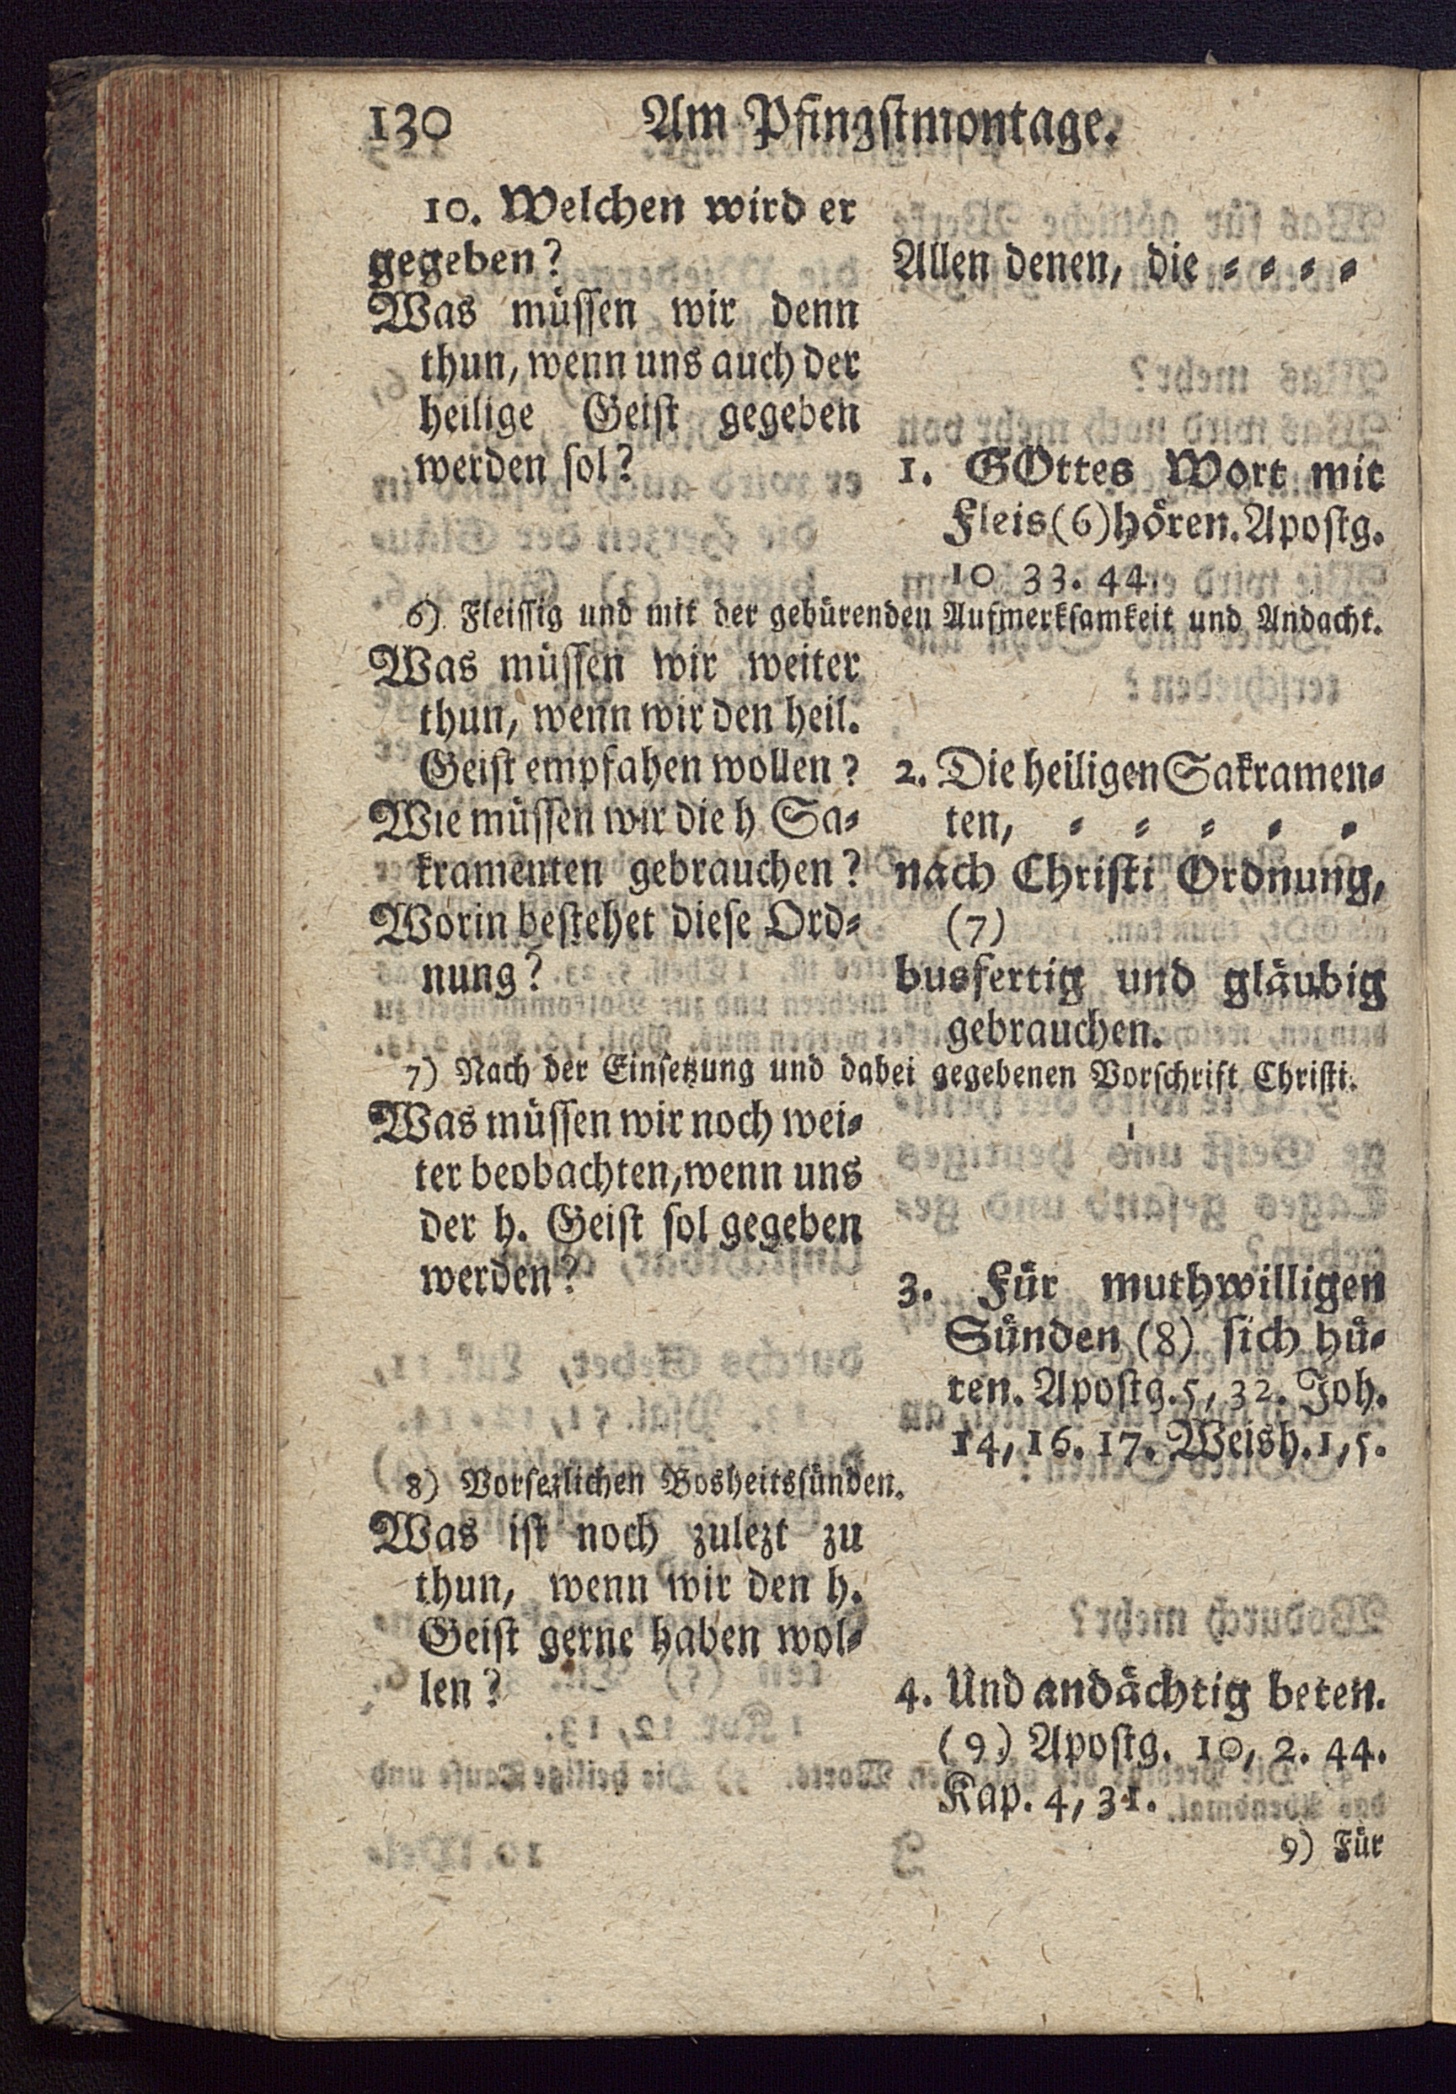 130 Am Pfingstmontage.
10. Welchen wird er
gegeben?
Allen denen, die = = = =
Was müssen wir denn
thun, wenn uns auch der
heilige Geist gegeben
werden sol?
1. GOttes Wort mit
Fleis (6) hören. Apostg.
10 33. 44.
6) Fleissig und mit der gebürenden Aufmerksamkeit und Andacht.
Was müssen wir weiter
thun, wenn wir den heil.
Geist empfahen wollen?
2. Die heiligen Sakramen=
ten, = = = = =
Wie müssen wir die h Sa=
kramenten gebrauchen?
nach Christi Ordnung,
(7)
Worin bestehet diese Ord=
nung?
busfertig und gläubig
gebrauchen.
7) Nach der Einsetzung und dabei gegebenen Vorschrift Christi.
Was müssen wir noch wei=
ter beobachten, wenn uns
der h. Geist sol gegeben
werden?
3. Für muthwilligen
Sünden (8) sich hü=
ten. Apostg. 5, 32. Joh.
14, 16. 17. Weish. 1, 5.
8) Vorsezlichen Bosheitssünden.
Was ist noch zulezt zu
thun, wenn wir den h.
Geist gerne haben wol=
len?
4. Und andächtig beten.
(9) Apostg. 10, 2. 44.
Kap. 4, 31.
9) Für